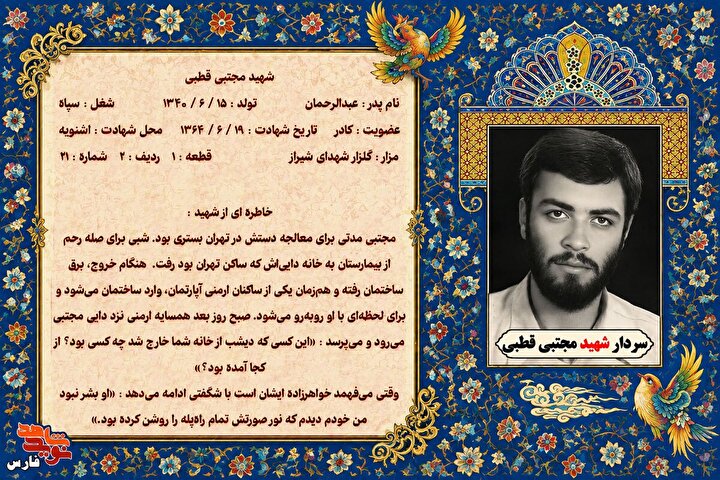 شهید مجتبی قطبی
نام پدر : عبدالرحمان تولد : ۱۵ / ۶ / ۱۳۴۰ شغل : سپاه
عضویت : کادر تاریخ شهادت : ۱۹ / ۶ / ۱۳۶۴ محل شهادت : اشنویه
مزار : گلزار شهدای شیراز قطعه : ۱ ردیف : ۲ شماره : ۲۱
خاطره ای از شهید :
مجتبی مدتی برای معالجه دستش در تهران بستری بود. شبی برای صله رحم
از بیمارستان به خانه دایی‌اش که ساکن تهران بود رفت. هنگام خروج، برق
ساختمان رفته و هم‌زمان یکی از ساکنان ارمنی آپارتمان، وارد ساختمان می‌شود و
برای لحظه‌ای با او روبه‌رو می‌شود. صبح روز بعد همسایه ارمنی نزد دایی مجتبی
می‌رود و می‌پرسد : «این کسی که دیشب از خانه شما خارج شد چه کسی بود؟ از
کجا آمده بود؟»
وقتی می‌فهمد خواهرزاده ایشان است با شگفتی ادامه می‌دهد : «او بشر نبود
من خودم دیدم که نور صورتش تمام راه‌پله را روشن کرده بود.»
سردار شهید مجتبی قطبی
نوید شاهد
فارس